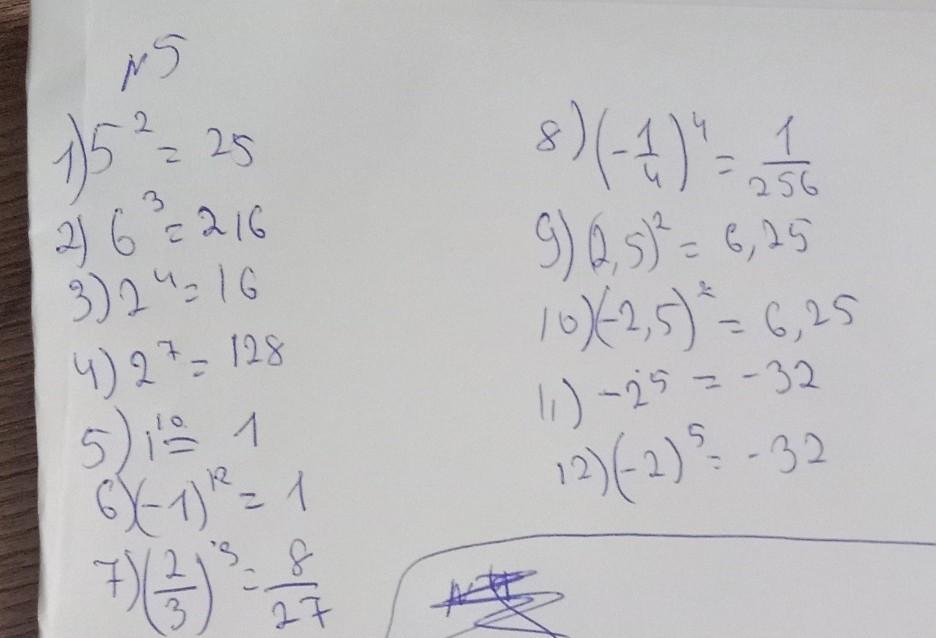 N5
1) 5² = 25
2) 6³ = 216
3) 2⁴ = 16
4) 2⁷ = 128
5) 1¹⁰ = 1
6) (-1)¹² = 1
7) (2/3)³ = 8/27
8) (-1/4)⁴ = 1/256
9) (2,5)² = 6,25
10) (-2,5)² = 6,25
11) -2⁵ = -32
12) (-2)⁵ = -32